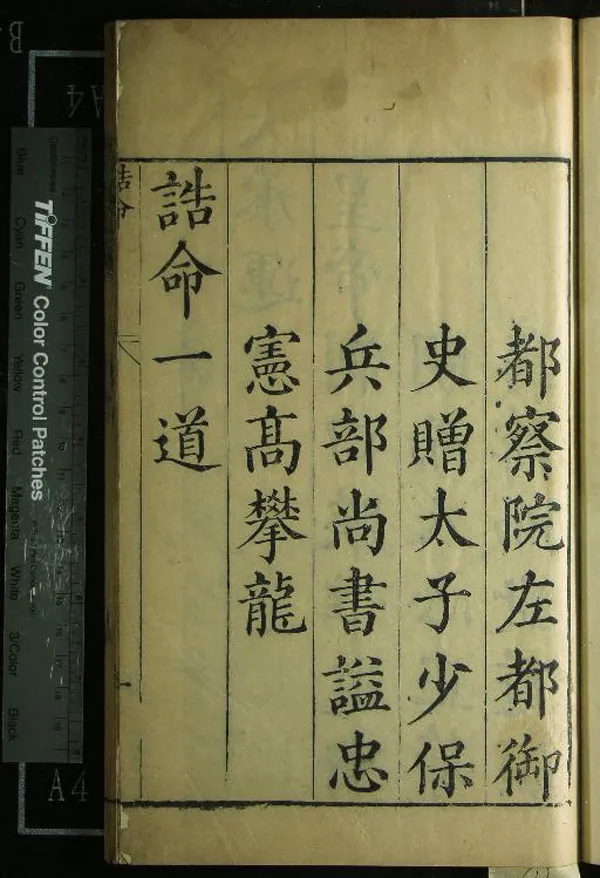 都察院左都御
史贈太子少保
兵部尚書謚忠
憲髙攀龍
誥命一道
誥命
一
TIFFEN Color Control Patches
Blue Cyan Green Yellow Red Magenta White 3/Color Black
Centimetres
A4
A4
B